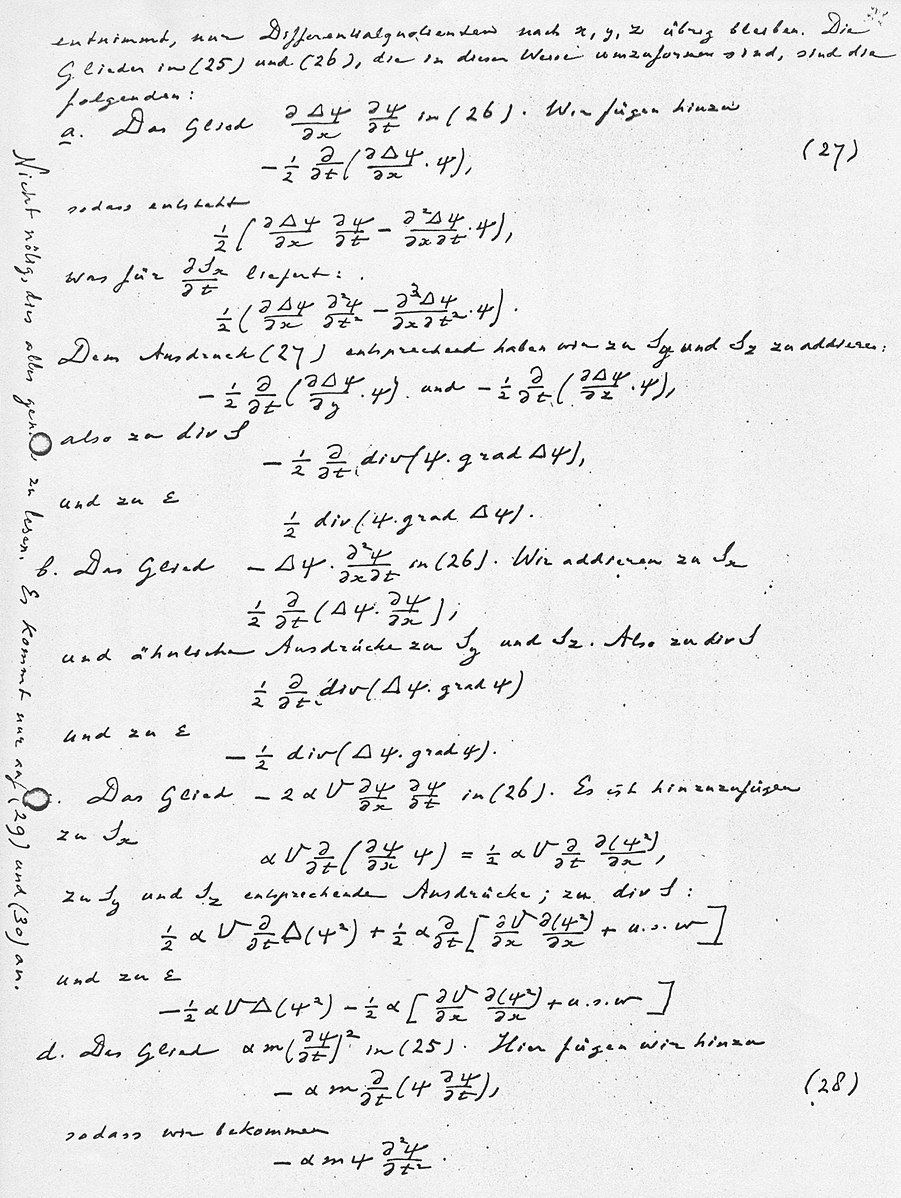 entnimmt, nur Differentialquotienten nach x, y, z übrig bleiben. Die
Glieder in (25) und (26), die in dieser Weise umzuformen sind, sind die
folgenden:
a. Das Glied ∂Δψ/∂x ∂ψ/∂t in (26). Wir fügen hinzu
−½ ∂/∂t(∂Δψ/∂x · ψ), (27)
sodass entsteht
½(∂Δψ/∂x ∂ψ/∂t − ∂²Δψ/∂x∂t · ψ),
was für ∂S_x/∂t liefert:
½(∂Δψ/∂x ∂²ψ/∂t² − ∂³Δψ/∂x∂t² · ψ).
Dem Ausdruck (27) entsprechend haben wir zu S_y und S_z zu addieren:
−½ ∂/∂t(∂Δψ/∂y · ψ) und −½ ∂/∂t(∂Δψ/∂z · ψ),
also zu div S
−½ ∂/∂t div(ψ · grad Δψ),
und zu ε
½ div(ψ · grad Δψ).
b. Das Glied −Δψ · ∂²ψ/∂x∂t in (26). Wir addieren zu S_x
½ ∂/∂t(Δψ · ∂ψ/∂x),
und ähnliche Ausdrücke zu S_y und S_z. Also zu div S
½ ∂/∂t div(Δψ · grad ψ)
und zu ε
−½ div(Δψ · grad ψ).
. Das Glied −2αV ∂ψ/∂x ∂ψ/∂t in (26). Es ist hinzuzufügen
zu S_x
αV ∂/∂t(∂ψ/∂x ψ) = ½ αV ∂/∂t ∂(ψ²)/∂x,
zu S_y und S_z entsprechende Ausdrücke; zu div S:
½ αV ∂/∂t Δ(ψ²) + ½ α ∂/∂t[∂V/∂x ∂(ψ²)/∂x + u.s.w]
und zu ε
−½ αVΔ(ψ²) − ½ α[∂V/∂x ∂(ψ²)/∂x + u.s.w]
d. Das Glied αm(∂ψ/∂t)² in (25). Hier fügen wir hinzu
−αm ∂/∂t(ψ ∂ψ/∂t), (28)
sodass wir bekommen
−αmψ ∂²ψ/∂t².
Nicht nötig, dies alles zu lesen. Es kommt nur auf (29) und (30) an.